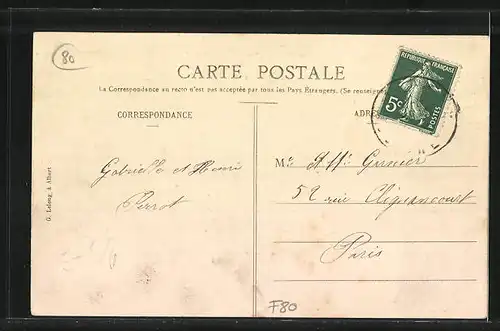 80
CARTE POSTALE
La Correspondance au recto n'est pas acceptée par tous les Pays Étrangers. (Se renseigner
CORRESPONDANCE
ADRE
REPUBLIQUE FRANÇAISE
5c
POSTES
Gabrielle et Henri
Perrot
52 rue Clignancourt
Paris
G. Lelong, à Albert
F80